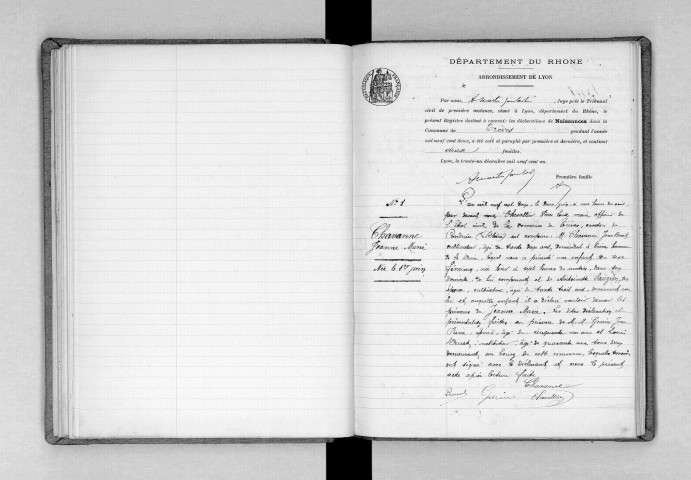 DÉPARTEMENT DU RHONE
ARRONDISSEMENT DE LYON
Par nous, juge près le Tribunal
civil de première instance, séant à Lyon, département du Rhône, le
présent Registre destiné à recevoir les déclarations de Naissances dans la
Commune de Trèves pendant l'année
mil neuf cent deux, a été coté et paraphé par première et dernière, et contient
deux feuilles.
Lyon, le trente-un décembre mil neuf cent un.
Première feuille
N° 1
Chavanne
Jeanne Marie
Née le 1er juin
L'an mil neuf cent deux, le deux juin, à une heure du soir,
par devant nous Chevallier maire officier de
l'état civil de la commune de Trèves, canton de
Condrieu (Rhône) est comparu M. Chavanne
cultivateur, âgé de trente deux ans, domicilié à Trèves
lequel nous a présenté un enfant du sexe
féminin, né hier à sept heures du matin, dans son
domicile, de lui comparant et de Antoinette
épouse, cultivatrice, âgée de trente trois ans, demeurant avec
lui et auquel enfant il a déclaré vouloir donner les
prénoms de Jeanne Marie. Les dites déclaration et
présentation faites en présence de M. M. Jean
Pierre, âgé de cinquante un ans et Louis
instituteur, âgé de quarante ans tous deux
demeurant au bourg de cette commune, lesquels témoins
ont signé avec le déclarant et nous le présent
acte après lecture faite.
Chavanne